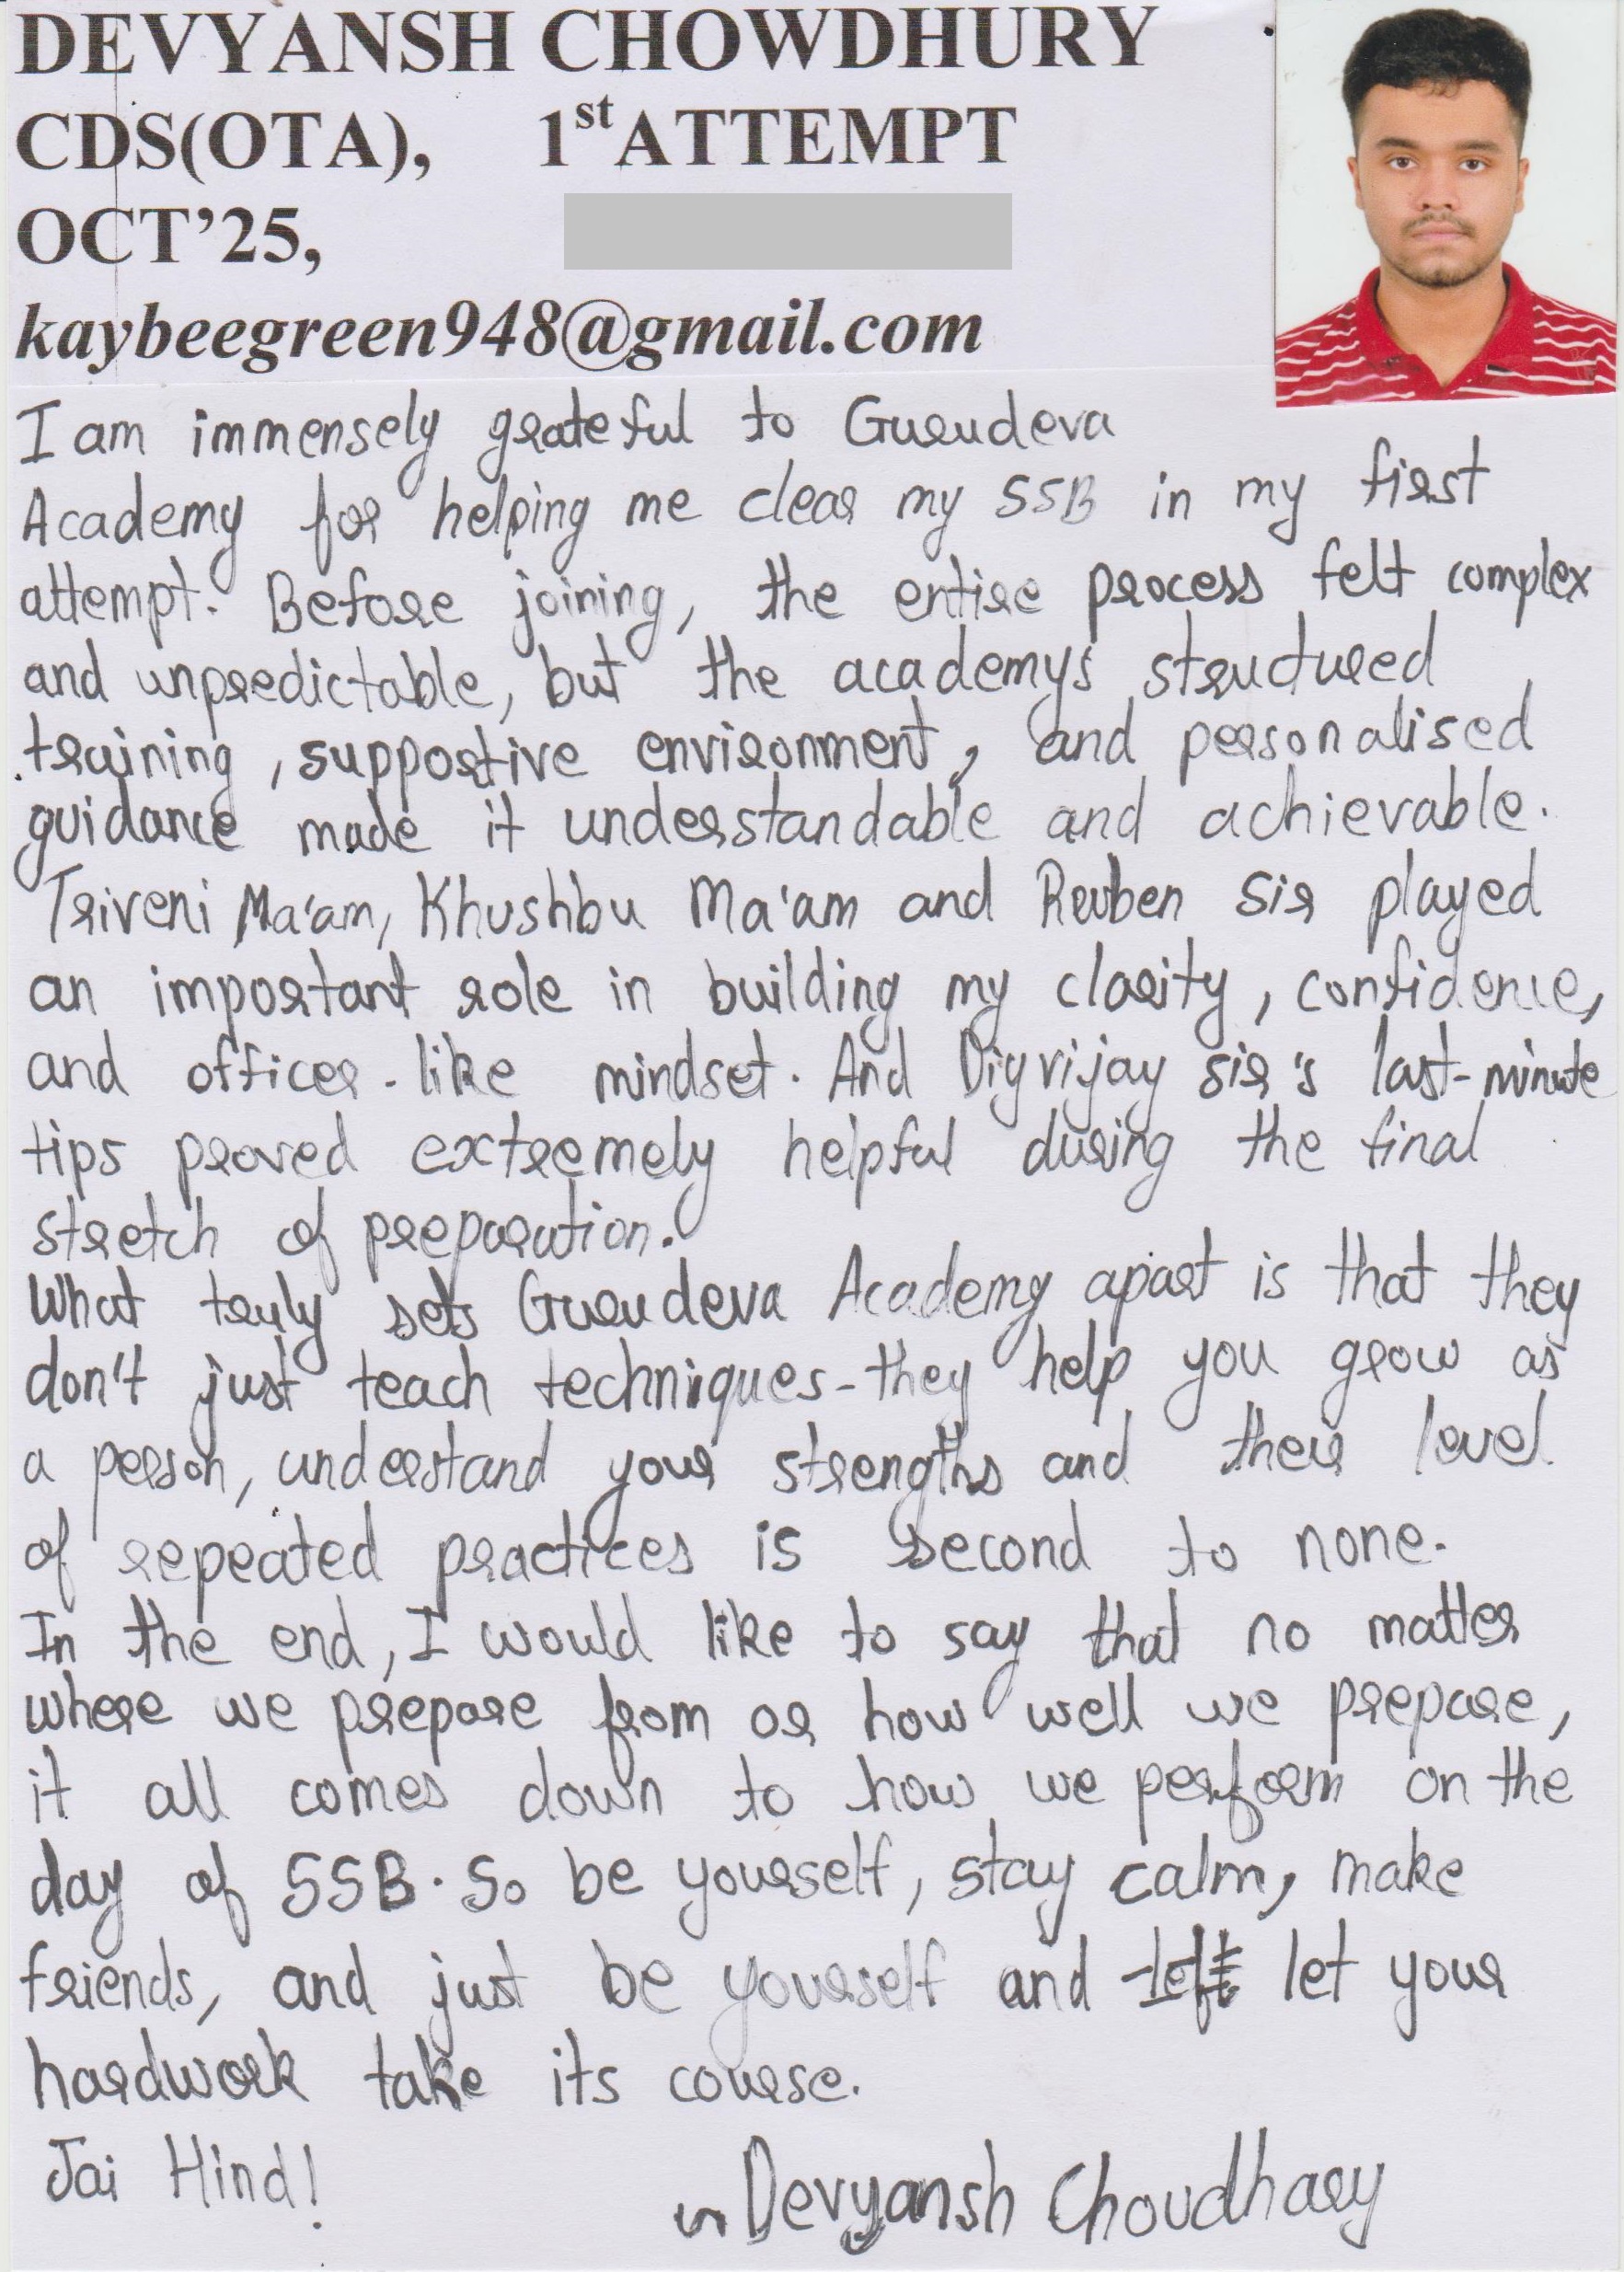 DEVYANSH CHOWDHURY
CDS(OTA), 1st ATTEMPT
OCT'25,
kaybeegreen948@gmail.com
I am immensely grateful to Gurudeva
Academy for helping me clear my SSB in my first
attempt. Before joining, the entire process felt complex
and unpredictable, but the academy's structured
training, supportive environment, and personalised
guidance made it understandable and achievable.
Triveni Ma'am, Khushbu Ma'am and Reuben Sir played
an important role in building my clarity, confidence,
and officer-like mindset. And Digvijay sir's last-minute
tips proved extremely helpful during the final
stretch of preparation.
What truly sets Gurudeva Academy apart is that they
don't just teach techniques-they help you grow as
a person, understand your strengths and their level
of repeated practices is second to none.
In the end, I would like to say that no matter
where we prepare from or how well we prepare,
it all comes down to how we perform on the
day of SSB. So be yourself, stay calm, make
friends, and just be yourself and let your
hardwork take its course.
Jai Hind!
Devyansh Choudhary